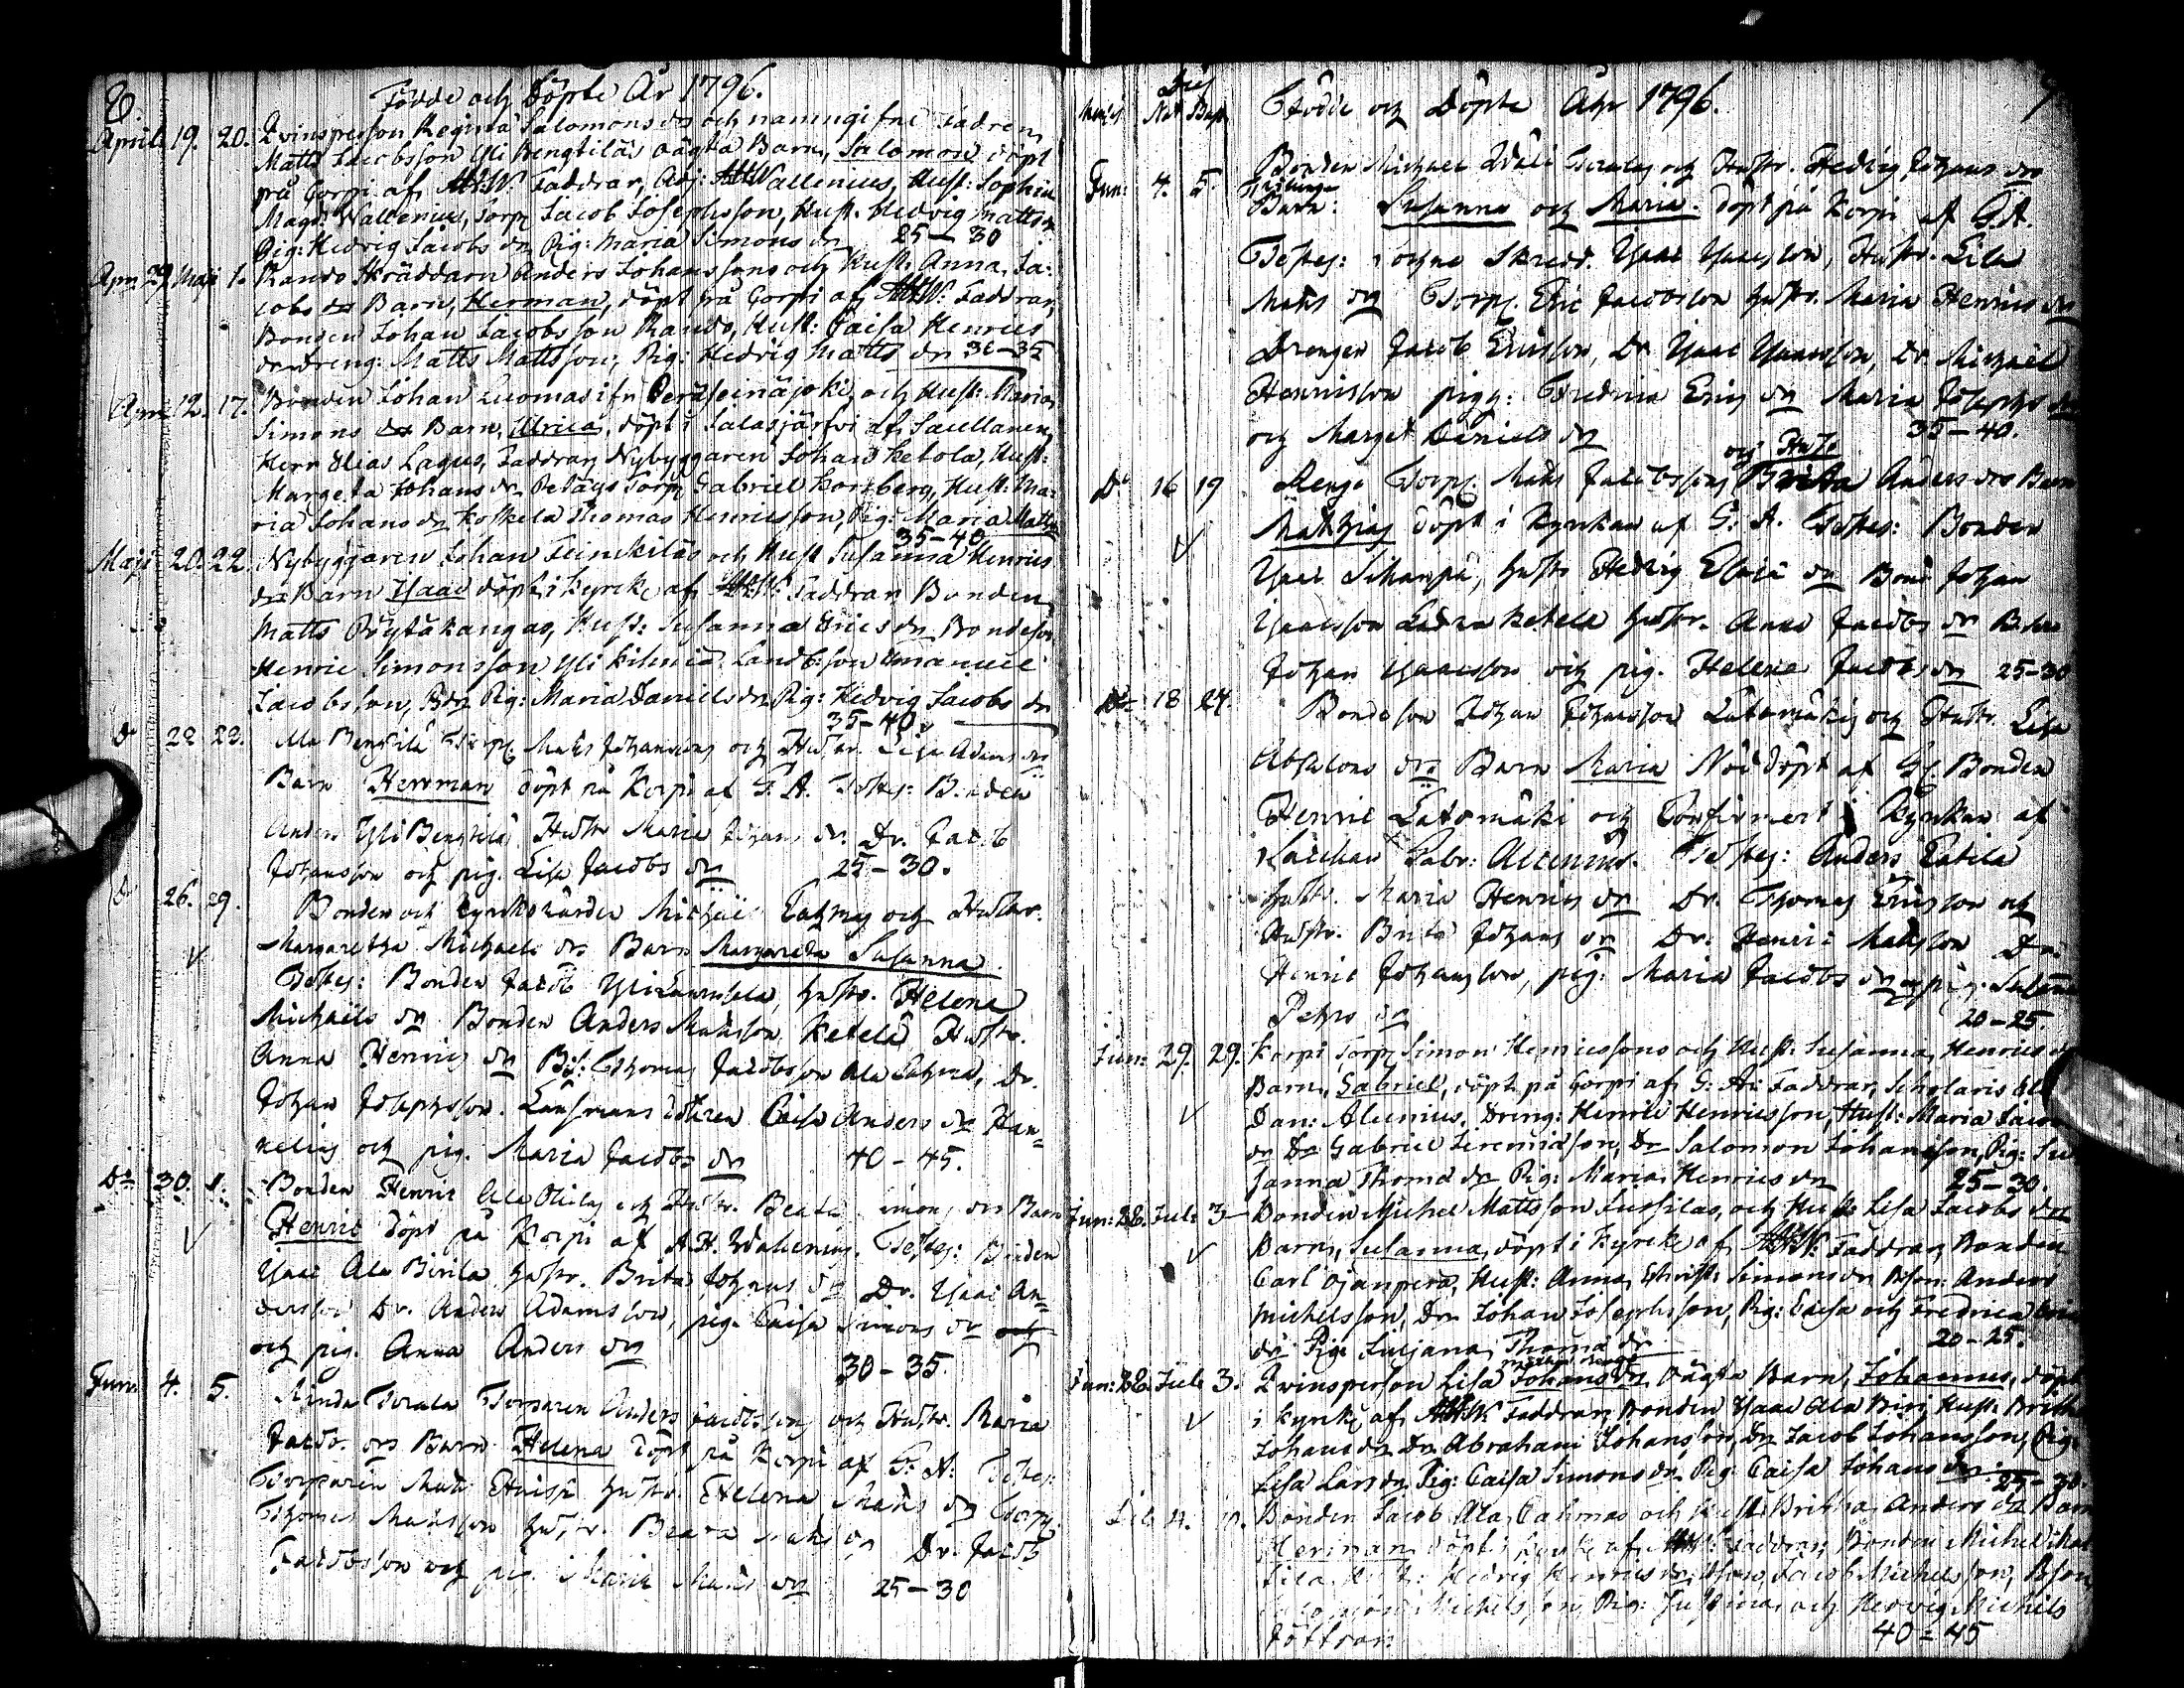 6.
Födde och Döpte År 1796.
April 19. 20. Qvinsperson Regina Salomons dr och namngifne fadren
Matts Jacobsson Yli Bengtiläs oägta Barn, Salomon döpt
på Corpi af AHW. Faddrar, Adj: AHWallenius, Hust: Sophia
Magd: Wallenius, Torp: Jacob Josephsson, Hust. Hedvig Matts dr
Pig: Hedvig Jacobs dr, Pig: Maria Simons dr 25-30
Apr. 29. Maji 1. Rando Skräddarn Anders Johanssons och Hust: Anna Ja-
cobs dr Barn, Herman, döpt på Corpi af AHW: Faddrar,
Bonden Johan Jacobsson Rando, Hust: Caisa Henrics
dr Dreng: Matts Mattsson, Pig: Hedvig Matts dr 30-35
Apr. 12. 17. Bonden Johan Luomas ifr Peräseinäjoki och Hust: Maria
Simons dr Barn, Ulrica, döpt i Salasjärfvi af Sacellanen
Herr Elias Lagus, Faddrar, Nybyggaren Johan Ketola, Hust:
Margeta Johans dr Peläys Torp: Gabriel Korsberg, Hust: Ma-
ria Johans dr Koskela Thomas Henricsson, Pig: Maria Matts dr
35-40
Maji 20. 22. Nybyggaren Johan Teinikiläs och Hust Susanna Henrics
dr Barn Isaac döpt i Kyrck. af AHW: Faddrar Bonden
Matts Pöytäkangas, Hust: Susanna Erics dr Bondeson
Henric Simonsson Yli Kihniä Landb:son Emanuel
Jacobsson, Pig: Maria Daniels dr Pig: Hedvig Jacobs dr
35-40
Do 22 23. Ala Bengtilä Torp. Matts Johanssons och Hustr. Lisa Adams dr
Barn Herrman döpt på Korpi af G. A. Testes: Bonden
Anders Yli Bengtilä Hustr Maria Johans dr. Dr. Jacob
Johansson och pig. Lisa Jacobs dr 25-30.
Do 26. 29. Bonden och Kyrckovärden Michael Cahmas och Hustr.
Margaretha Michaels dr Barn Margareta Susanna.
Testes: Bonden Jacob Yli Laurusela, hustr. Helena
Michaels dr Bonden Anders Mattsson Ketela Hustr.
Anna Henrics dr Bs: Thomas Jacobsson Ala Cahma, Dr.
Johan Josephsson. Länsmans dottren Caisa Anders dr Han-
nelius och pig. Maria Jacobs dr 40-45.
Do 30. 1. Bonden Henric Ala Ollilas och Hustr. Beata Simons dr Barn
Henric döpt på Korpi af A.H. Wallenius. Testes: Bonden
Isaac Ala Birila, hustr. Brita Johans dr Dr. Isaac An-
dersson Dr. Anders Adamsson, pig. Caisa Simons dr och
och pig. Anna Anders dr
30-35.
Jun: 4. 5. Rinda Torala Torparen Anders Jacobssons och Hustr. Maria
Jacobs drs Barn Helena döpt på Korpi af G. A: Testes:
Torparen Matts Huisk hustr. Helena Matts dr Torp.
Thomas Mattsson hustr. Beata Matts dr Dr. Jacob
Jacobsson och pig. Maria Matts dr 25-30
7
Menses Dies Nat. Bapt. Födde och Döpte Åhr 1796.
Jun: 4. 5. Bonden Michael Wäli Toralas och Hustr. Hedvig Johans dr
Tvillinge
Barn: Susanna och Maria. döpt på Korpi af G. A.
Testes: Skredd. Isaac Isaacsson, Hustr. Lisa
Matts dr Torp. Eric Jacobsson hustr. Maria Henrics dr
Drengen Jacob Ericsson, Dr Isaac Isaacsson, Dr. Michael
Henricsson pigg: Fredrica Erics dr Maria Josephs dr
och Marget Daniels dr 35-40.
och Hustr
Do 16 19 Renga Torp. Matts Jacobssons Brita Anders drs Barn
Matthias döpt i Kyrkan af G. A. Testes: Bonden
Isaac Sikanpä, hustr Hedvig Elsiä dr Bond Johan
Isaacsson Ladra Ketela hustr. Anna Jacobs dr B.
Johan Isaacsson och pig. Helena Jacobs dr 25-30
Do 18 24. Bondesson Johan Johansson Latomäkis och Hustr. Lisa
Absalons drs Barn Maria Nöddöpt af Gl. Bonden
Henric Latomäki och Confirmert i Kyrkan af
Gabr: Alcenius. Testes: Anders Catila
hustr. Maria Henrics dr Dr. Thomas Ericsson och
Hustr. Brita Johans dr Dr. Henric Mattsson Dr.
Henric Johansson, pig. Maria Jacobs dr och pig. Susanna
Pehrs dr 20-25.
Jun: 29. 29. Korpi Torp Simon Henricssons och Hust: Susanna Henrics dr
Barn, Gabriel, döpt på Corpi af G: A: Faddrar, Scholaris
Dan: Alcenius. Dreng: Henric Henricsson, Hust: Maria Jacobs
dr Dr Gabriel Jeremiasson, Dr Salomon Johansson, Pig: Su
sanna Thoms dr Pig: Maria Henrics dr 25-30.
Jun: 28. Juli 3 Bonden Michel Mattsson Jussilas, och Hust: Lisa Jacobs dr
Barn, Susanna, döpt i Kyrck. af AHW: Faddrar Bonden
Carl Ojanperä, Hust: Anna, Simons dr Bson: Anders
Michelsson, Dr Johan Josephsson, Pig: Caisa och Fredrica
dr Pig: Juliana Thoms dr 20-25.
Jun: 28. Juli 3. Qvinsperson Lisa Johans dr oägta Barn, Johannes, döpt
i Kyrck. af AHW: Faddrar Bonden Isaac Ala Biri, Hust: Britha
Johans dr Dr Abraham Johansson, Dr Jacob Johansson, Pig:
Lisa Lars dr, Pig: Caisa Simons dr, Pig: Caisa Johans dr 25-30.
Juli 4. 10. Bonden Jacob Ala Cahmas och Hust: Britha Anders dr Barn
Herman döpt i Kyrck. af AHW: Faddrar Bonden Michel
Hust: Hedvig Henrics dr, Bson, Jacob Michelsson, Bson
Salomon Michelsson, Pig: Justina och Hedvig Michels
döttrar. 40-45